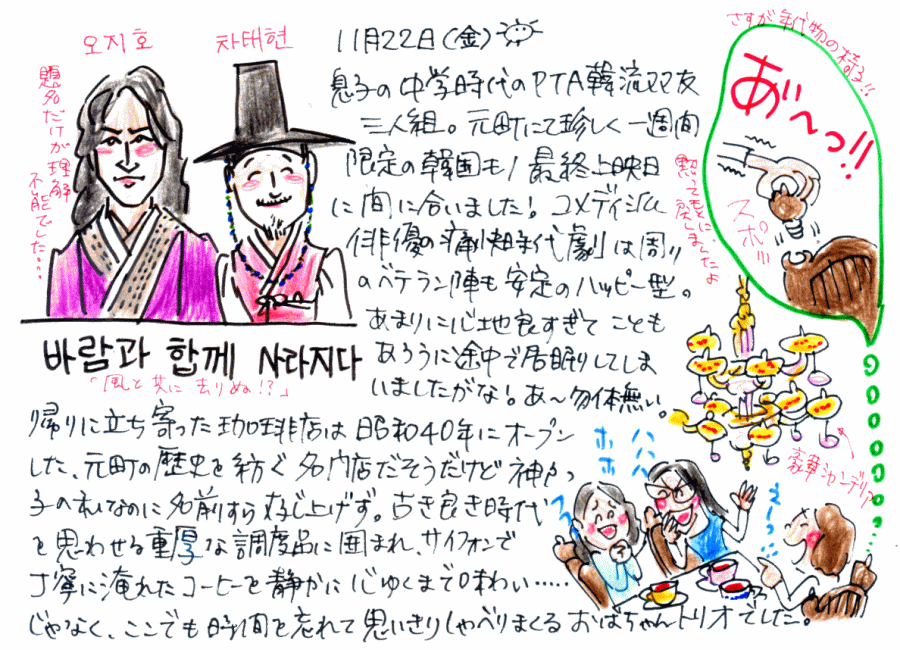 오지호
차태현
題名だけが理解
不能でした…
11月22日(金)
息子の中学時代のPTA韓流双友
三人組。元町にて珍しく一週間
限定の韓国モノ最終上映日
に間に合いました！コメディ仕込
俳優の痛快時代劇は周り
のベテラン陣も安定のハッピー型。
あまりに心地良すぎてことも
あろうに途中で居眠りしてしま
いましたがな！あ〜勿体無い。
바람과 함께 사라지다
「風と共に去りぬ！？」
帰りに立ち寄った珈琲店は昭和40年にオープン
した、元町の歴史を紡ぐ名門店だそうだけど神戸っ
子の私なのに名前すら存じ上げず。古き良き時代
を思わせる重厚な調度品に囲まれ、サイフォンで
丁寧に淹れたコーヒーを静かに心ゆくまで味わい……
じゃなく、ここでも時間を忘れて思いきりしゃべりまくるおばちゃんトリオでした。
さすが年代物の椅子!!
あ゛〜っ!!
スポッ!!
黙ってもとに戻しましたよ
豪華シャンデリア
ホホ
ハハハ
え〜っ